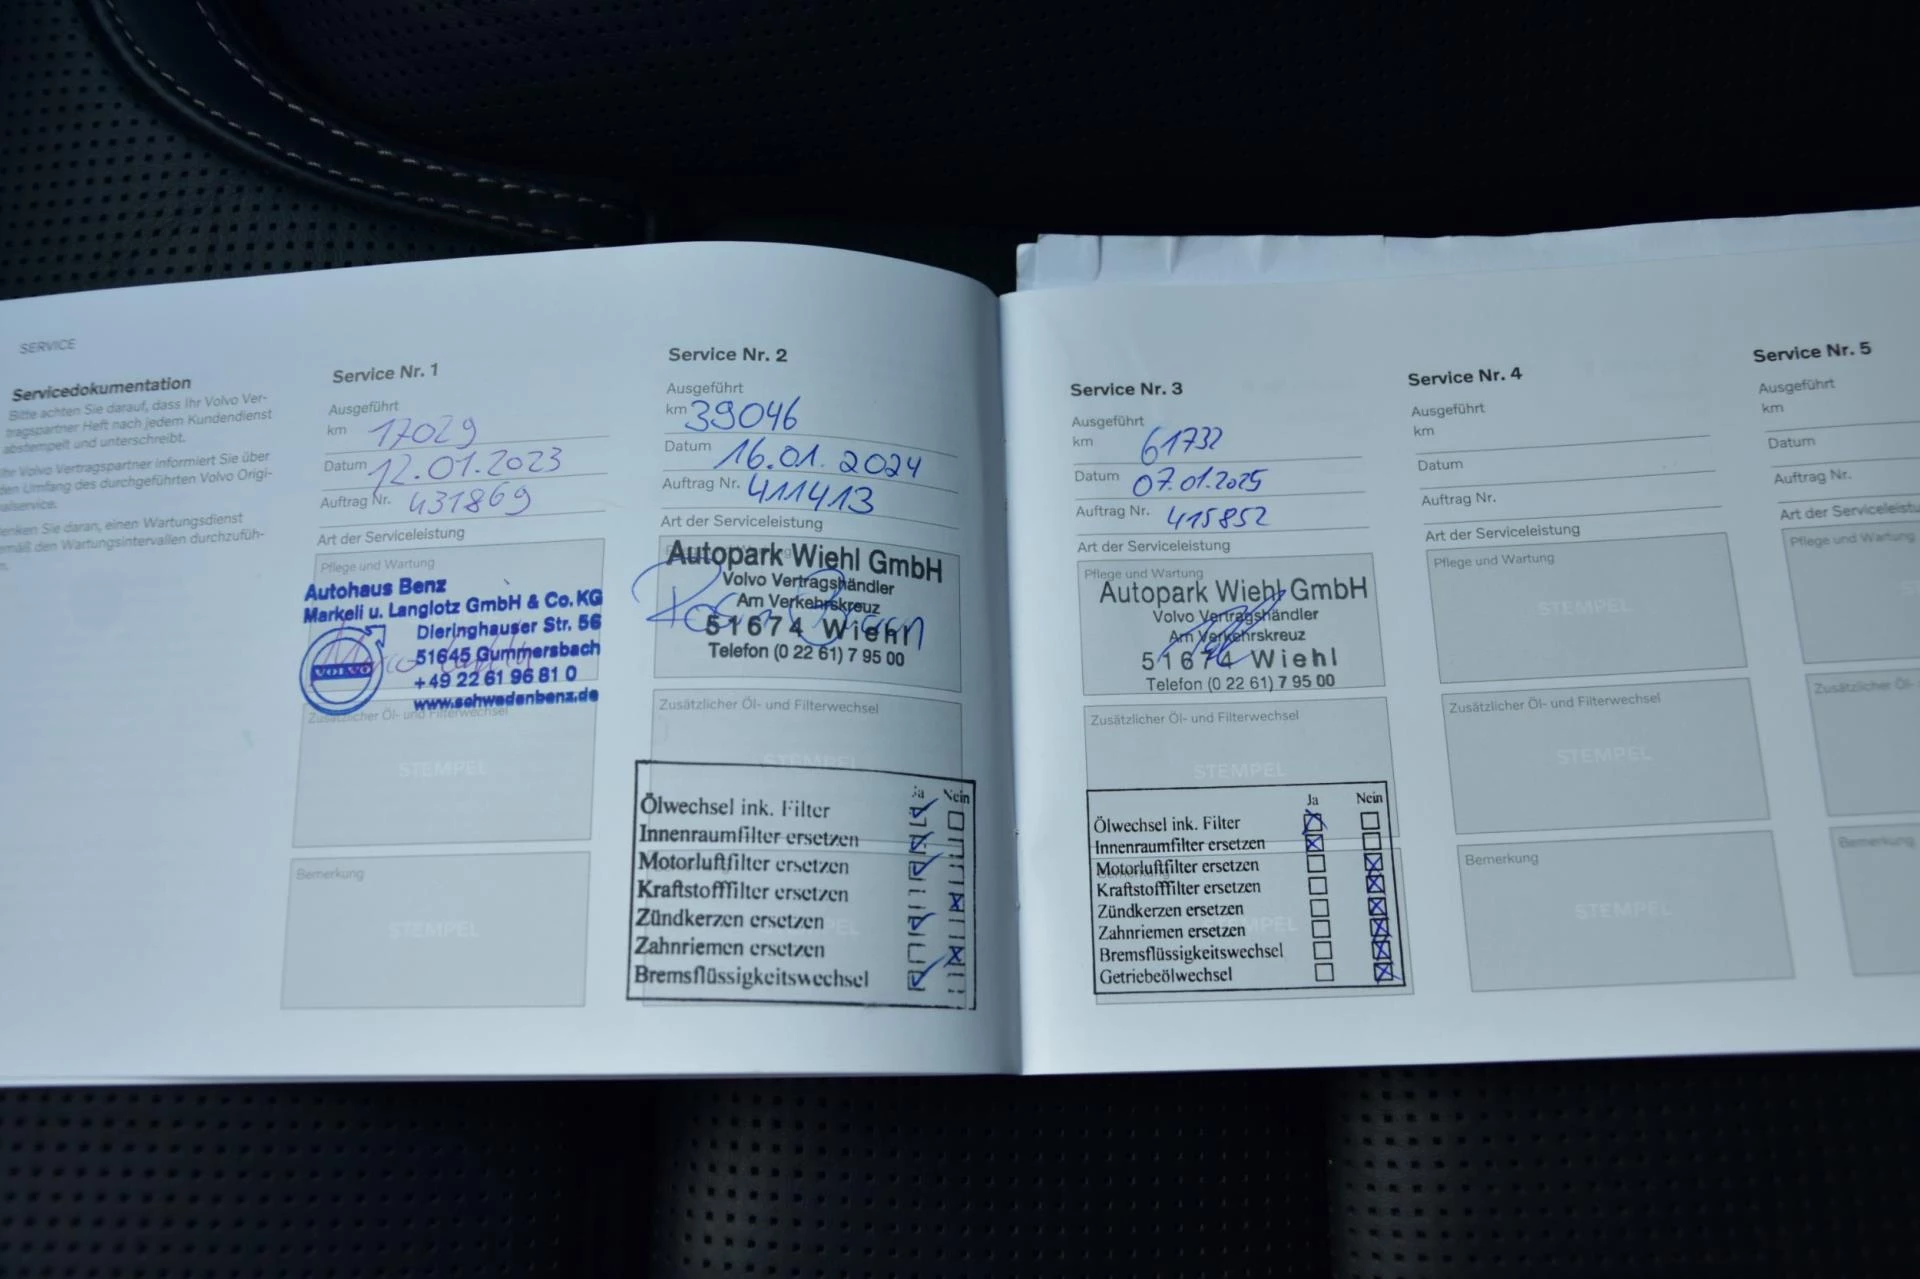 SERVICE
Servicedokumentation
Bitte achten Sie darauf, dass Ihr Volvo Ver-
tragspartner Heft nach jedem Kundendienst
abstempelt und unterschreibt.
Ihr Volvo Vertragspartner informiert Sie über
den Umfang des durchgeführten Volvo Origi-
nalservice.
enken Sie daran, einen Wartungsdienst
emäß den Wartungsintervallen durchzufüh-
Service Nr. 1
Ausgeführt
km 17029
Datum 12.01.2023
Auftrag Nr. 431869
Art der Serviceleistung
Pflege und Wartung
Autohaus Benz
Markeli u. Langlotz GmbH & Co. KG
Dieringhauser Str. 56
51645 Gummersbach
+49 22 61 96 81 0
www.schwedenbenz.de
VOLVO
Zusätzlicher Öl- und Filterwechsel
STEMPEL
Bemerkung
STEMPEL
Service Nr. 2
Ausgeführt
km 39046
Datum 16.01.2024
Auftrag Nr. 411413
Art der Serviceleistung
Autopark Wiehl GmbH
Volvo Vertragshändler
Am Verkehrskreuz
51674 Wiehl
Telefon (0 22 61) 7 95 00
Zusätzlicher Öl- und Filterwechsel
STEMPEL
Ja Nein
Ölwechsel ink. Filter
Innenraumfilter ersetzen
Motorluftfilter ersetzen
Kraftstofffilter ersetzen
Zündkerzen ersetzen
Zahnriemen ersetzen
Bremsflüssigkeitswechsel
Service Nr. 3
Ausgeführt
km 61732
Datum 07.01.2025
Auftrag Nr. 415852
Art der Serviceleistung
Pflege und Wartung
Autopark Wiehl GmbH
Volvo Vertragshändler
Am Verkehrskreuz
51674 Wiehl
Telefon (0 22 61) 7 95 00
Zusätzlicher Öl- und Filterwechsel
STEMPEL
Ja Nein
Ölwechsel ink. Filter
Innenraumfilter ersetzen
Motorluftfilter ersetzen
Kraftstofffilter ersetzen
Zündkerzen ersetzen
Zahnriemen ersetzen
Bremsflüssigkeitswechsel
Getriebeölwechsel
Service Nr. 4
Ausgeführt
km
Datum
Auftrag Nr.
Art der Serviceleistung
Pflege und Wartung
STEMPEL
Zusätzlicher Öl- und Filterwechsel
STEMPEL
Bemerkung
STEMPEL
Service Nr. 5
Ausgeführt
km
Datum
Auftrag Nr.
Art der Serviceleistu
Pflege und Wartung
Zusätzlicher Öl- und
Bemerkung